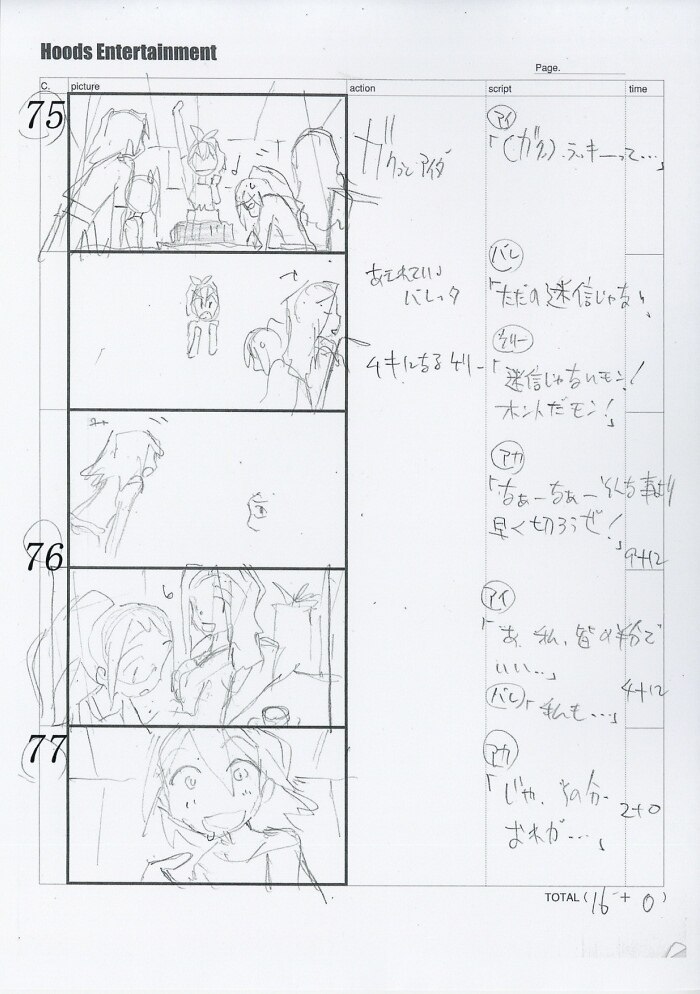 Hoods Entertainment
Page.
C. picture action script time
75
ガクッとアイダ
アイ
「(ガクッ)ラッキーって…」
あきれている
バレッタ
バレ
「ただの迷信じゃない」
ムキになるケリー
ケリー
「迷信じゃないモン!
ホントだモン!」
アカ
「なぁーなぁーそんな事より
早く切ろうぜ!」
9+12
76
アイ
「あ、私、皆の半分で
いい…」
4+12
バレ「私も…」
77
アカ
「じゃ、その分
おれが…」
2+0
TOTAL ( 16 + 0 )